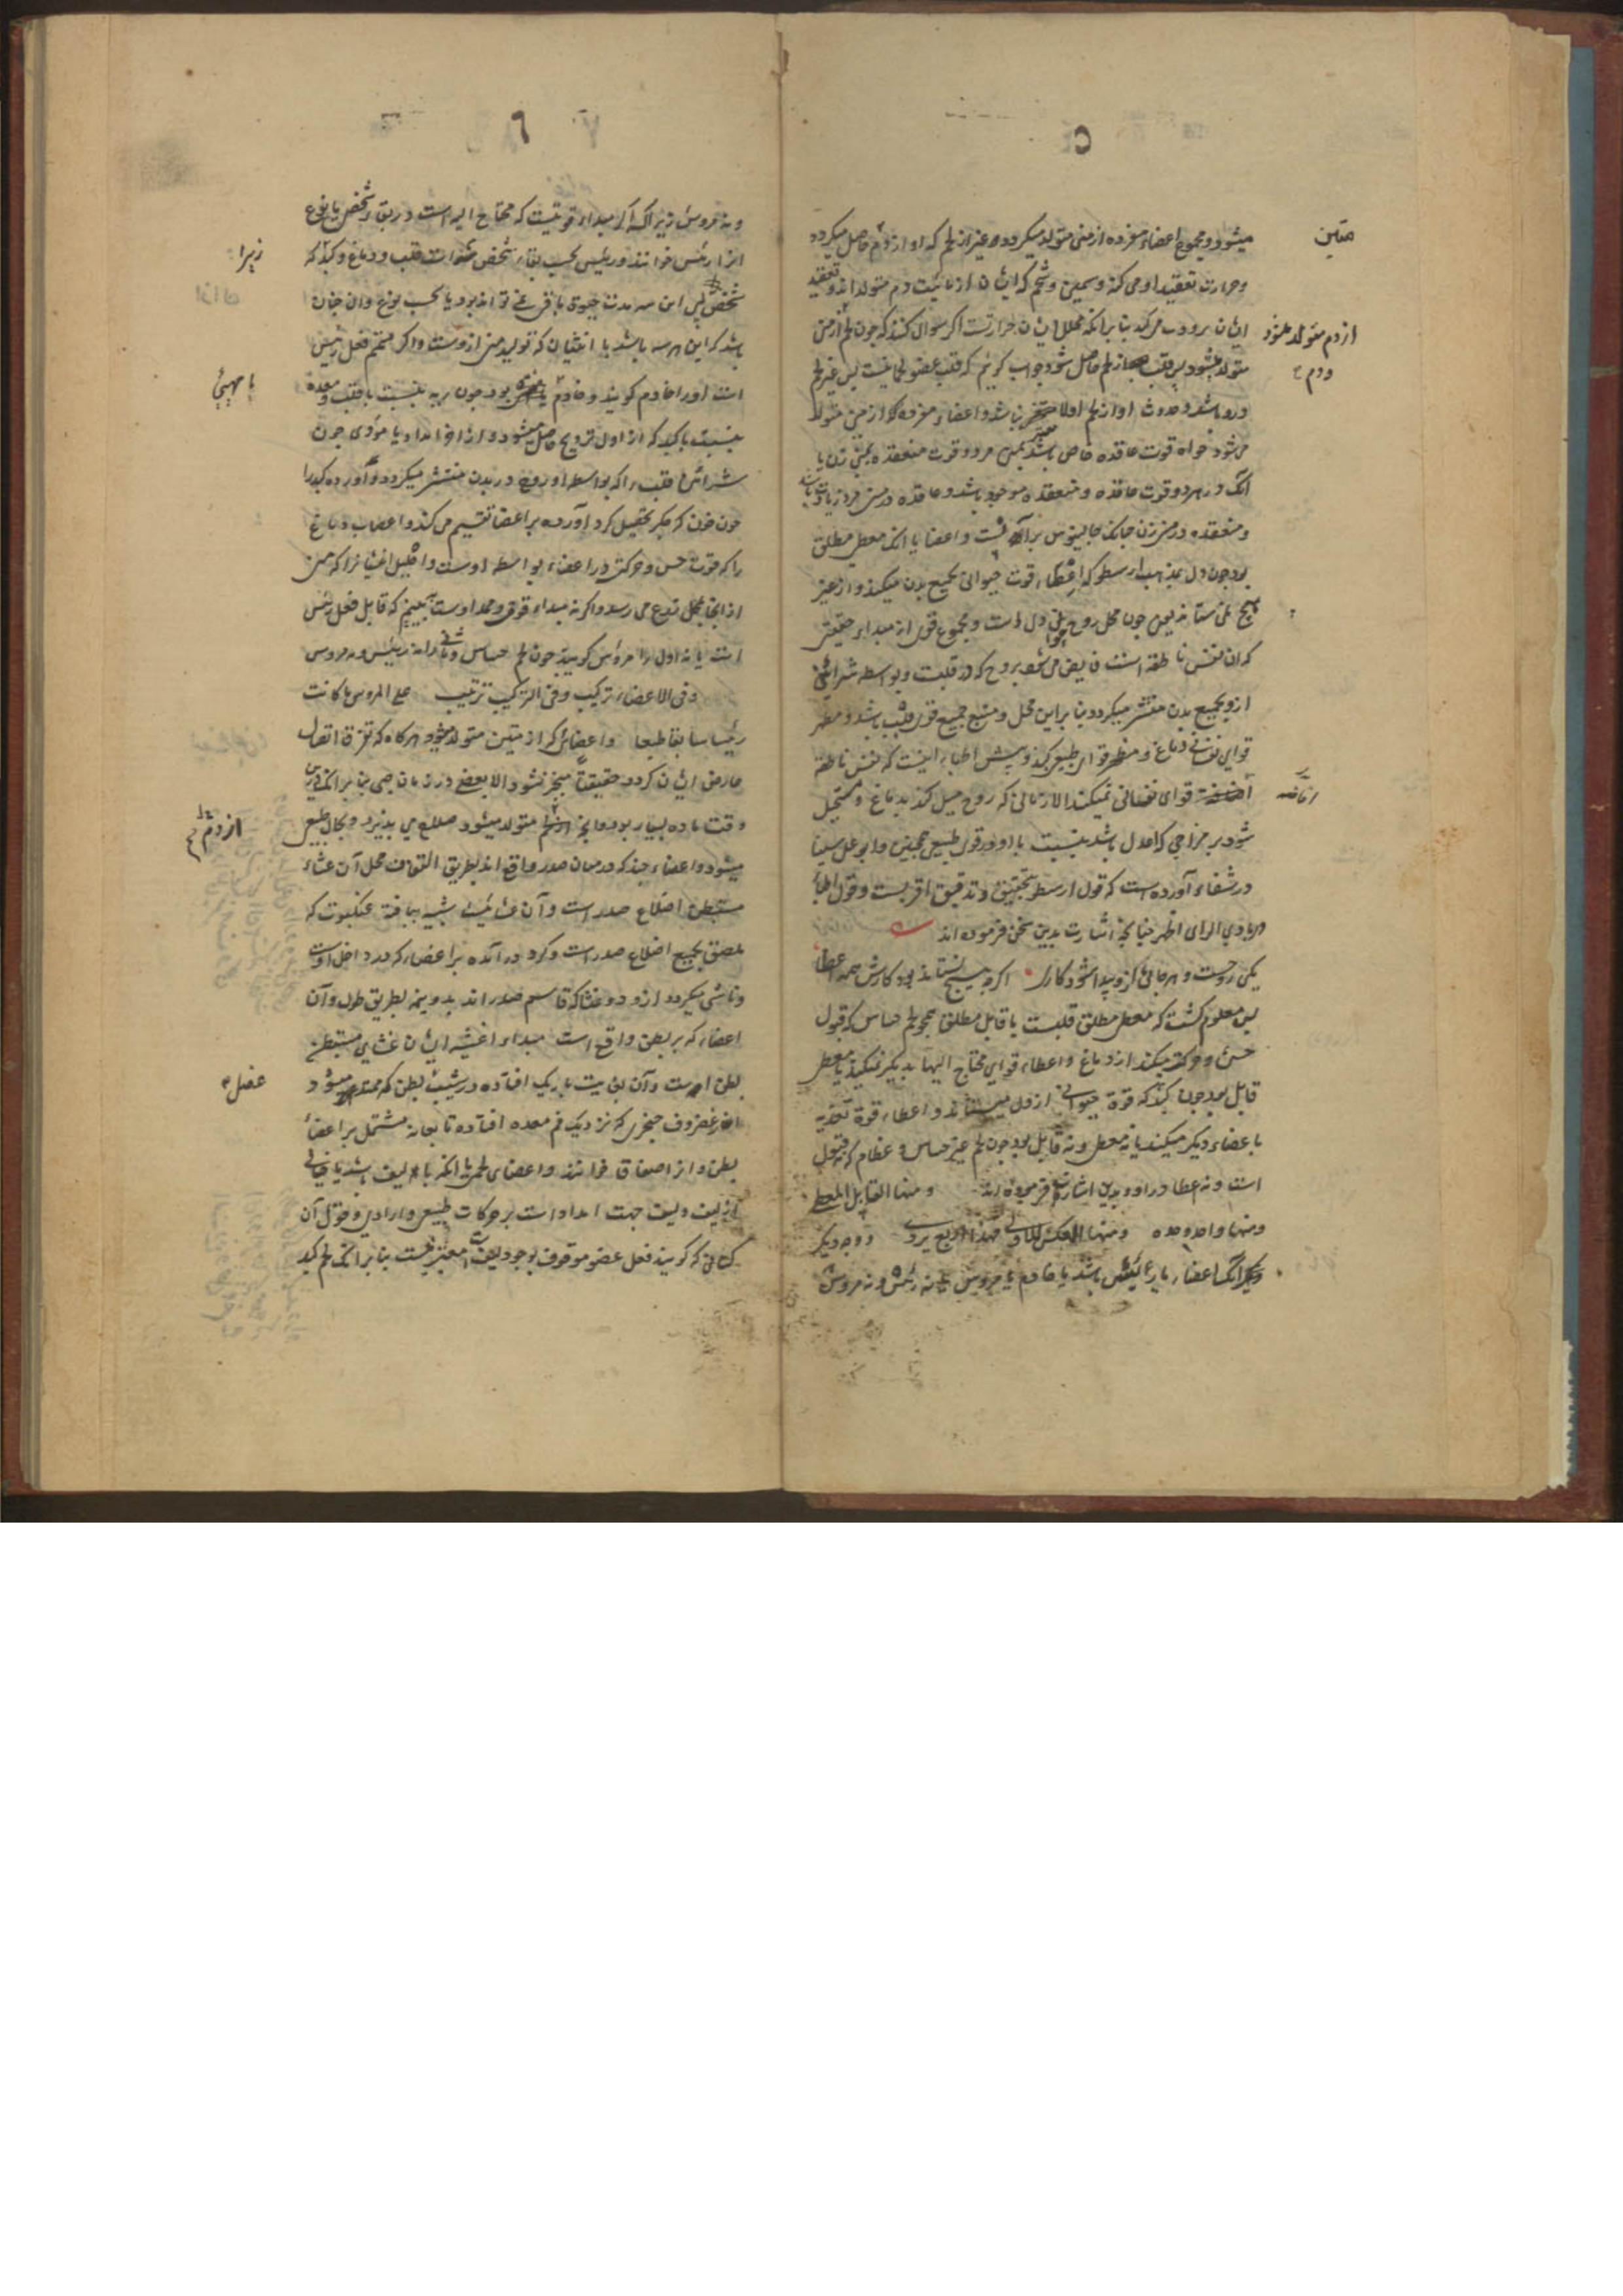 ۵
میشود و مجموع اعضاء مفرده از منی متولد میکردد غیر از لحم که او از دم حاصل میکردد
متین
و حرارت تعقید او می کند و سمین و شحم که ایشان از مائیت دم متولد اند و تعقید
ایشان برودت می کند بنا برانکه محلل ایشان حرارتست اکر سوال کنند که چون لحم از منی
از دم متولد میشود
ودم
متولد میشود پس قلب از لحم حاصل شود جواب کوئیم که قلب عضو لحمانیست پس غیر لحم
درو باشد و حدوث او از لحم اولا نباشد و اعضاء مفرده که از منی متولد
می شود خواه قوت عاقده خاص باشد بمنی مرد و قوت منعقده بمنی زن یا
انک در هر دو قوت عاقده و منعقده موجود باشد و عاقده در منی مرد زیادت باشد
و منعقده در منی زن جنانک جالینوس برآنست و اعضا یا انک معطی مطلق
بود چون دل بمذهب ارسطو که اعطاء قوت حیوانی بجمیع بدن میکند و از غیر
هیچ نمی ستاند یعنی چون محل روح حیوانی دل است و مجموع قوی از مبداء حقیقی
که ان نفس ناطقه است فایض می شود بروح که در قلبست و بواسطه شرائین
ازو بجمیع بدن منتشر میکردد بنا براین محل و منبع جمیع قوی قلب باشد و مظهر
قوای نفسانی دماغ و مظهر قوای طبیعی کبد و پیش اطباء اینست که نفس ناطقه
افاضه
قوای نفسانی نمیکند الا زمانی که روح میل کند بدماغ و مستحیل
شود بر مزاجی که اعدل باشد بنسبت با او و در قوی طبیعی همچنین و ابو علی سینا
در شفاء آورده است که قول ارسطو بتحقیق و تدقیق اقربست و قول اطباء
در بادی الرای اظهر چنانچه اشارت بدین سخن فرموده اند
یکی روحست و هر جائی کزو پیدا شود کاری اکر هیچ نستاند بود کارش همه اعطا
پس معلوم کشت که معطی مطلق قلبست یا قابل مطلق همچو لحم حساس که قبول
حس و حرکت میکند از دماغ و اعطاء قوای محتاج الیها بدیکر نمیکند یا معطی
قابل بود چون کبد که قوة حیوانی از دل میستاند و اعطاء قوة تغذیه
با عضاء دیکر میکند یا نه معطی و نه قابل بود چون لحم غیر حساس و عظام که نه قبول
است و نه اعطا در او و بدین اشارت فرموده اند و منها القابل المعطی
و منها واحد وحده و منها العکس للاولی فهذا اربع یروی و وجه دیکر
انک اعضاء یا رئیس باشد یا خادم یا مرؤس یا نه رئیس و نه مرؤس
۶
و نه مرؤس زیراکه اکر مبداء قوتیست که محتاج الیه است در بقاء شخص یا نوع
انرا رئیس خوانند و رئیس بحسب بقاء شخص قلب و دماغ و کبد که
زیرا
شخص بی این سه مدت حیوة باقی نمی تواند بود یا بحسب نوع وان چنان
باشد که این هر سه باشد با انثیان که تولید منی ازوست و اکر متمم فعل رئیس
است او را خادم کویند و خادم یا بود چون ریه بنسبت با قلب و معده
یا مهیئ
بنسبت با کبد که از اول ترویح حاصل میشود و از امداد یا مؤدی چون
شرائین قلب را که بواسطه او روح در بدن منتشر میکردد و اورده کبد را
چون خون که جکر تحصیل کرد آورده بر اعضا تقسیم می کند و اعصاب دماغ
را که قوت حس و حرکت در اعضاء بواسطه اوست و احلیل انثیان را که منی
از انجا بمحل زرع می رسد و اکر نه مبداء قوی و ممد اوست که قابل فعل رئیس
است یا نه اول را مرؤس کویند چون لحم حساس و ثانی را نه رئیس و نه مرؤس
و فی الاعضاء ترکیب و فی الترکیب ترتیب علی المروس ما کانت
رئیسا سابقا طبعا و اعضائی که از متین متولد میشود هرکاه که تفرق اتصال
عارض ایشان کردد حقیقة منجبر نشود الا بعضی در زمان صبی بنا برانکه درین
وقت ماده بسیار بود و انچه از لحم متولد میشود صلاح می پذیرد و بحال طبیعی
از دم
میشود و اعضاء چند که در میان صدر واقع اند بطریق التفاف محل آن غشاء
مستبطن اضلاع صدر است و آن غشائیست شبیه ببافته عنکبوت که
ملصق بجمیع اضلاع صدر است و کرد در آمده بر اعضاء که در داخل اوست
و ناشی میکردد ازو دو غشا که قاسم صدر اند بدو نیمه بطریق طول و آن
اعضاء که بر بطن واقع است مبداء اغشیه ایشان غشای مستبطن
بطن است و آن باریک افتاده در شیب بطن که ممتد میشود
عضل
از غضروف خنجری که نزدیک فم معده افتاده تا بعانه مشتمل بر اعضاء
بطن و انرا صفاق خوانند و اعضای لحمی یا انکه با لیف باشد یا خالی
از لیف و لیف جهت امداد است بر حرکات طبیعی و ارادی و قول آن
کسانی که کویند فعل عضو موقوف بوجود لیف است معتبر نیست بنا برانکه لحم کبد